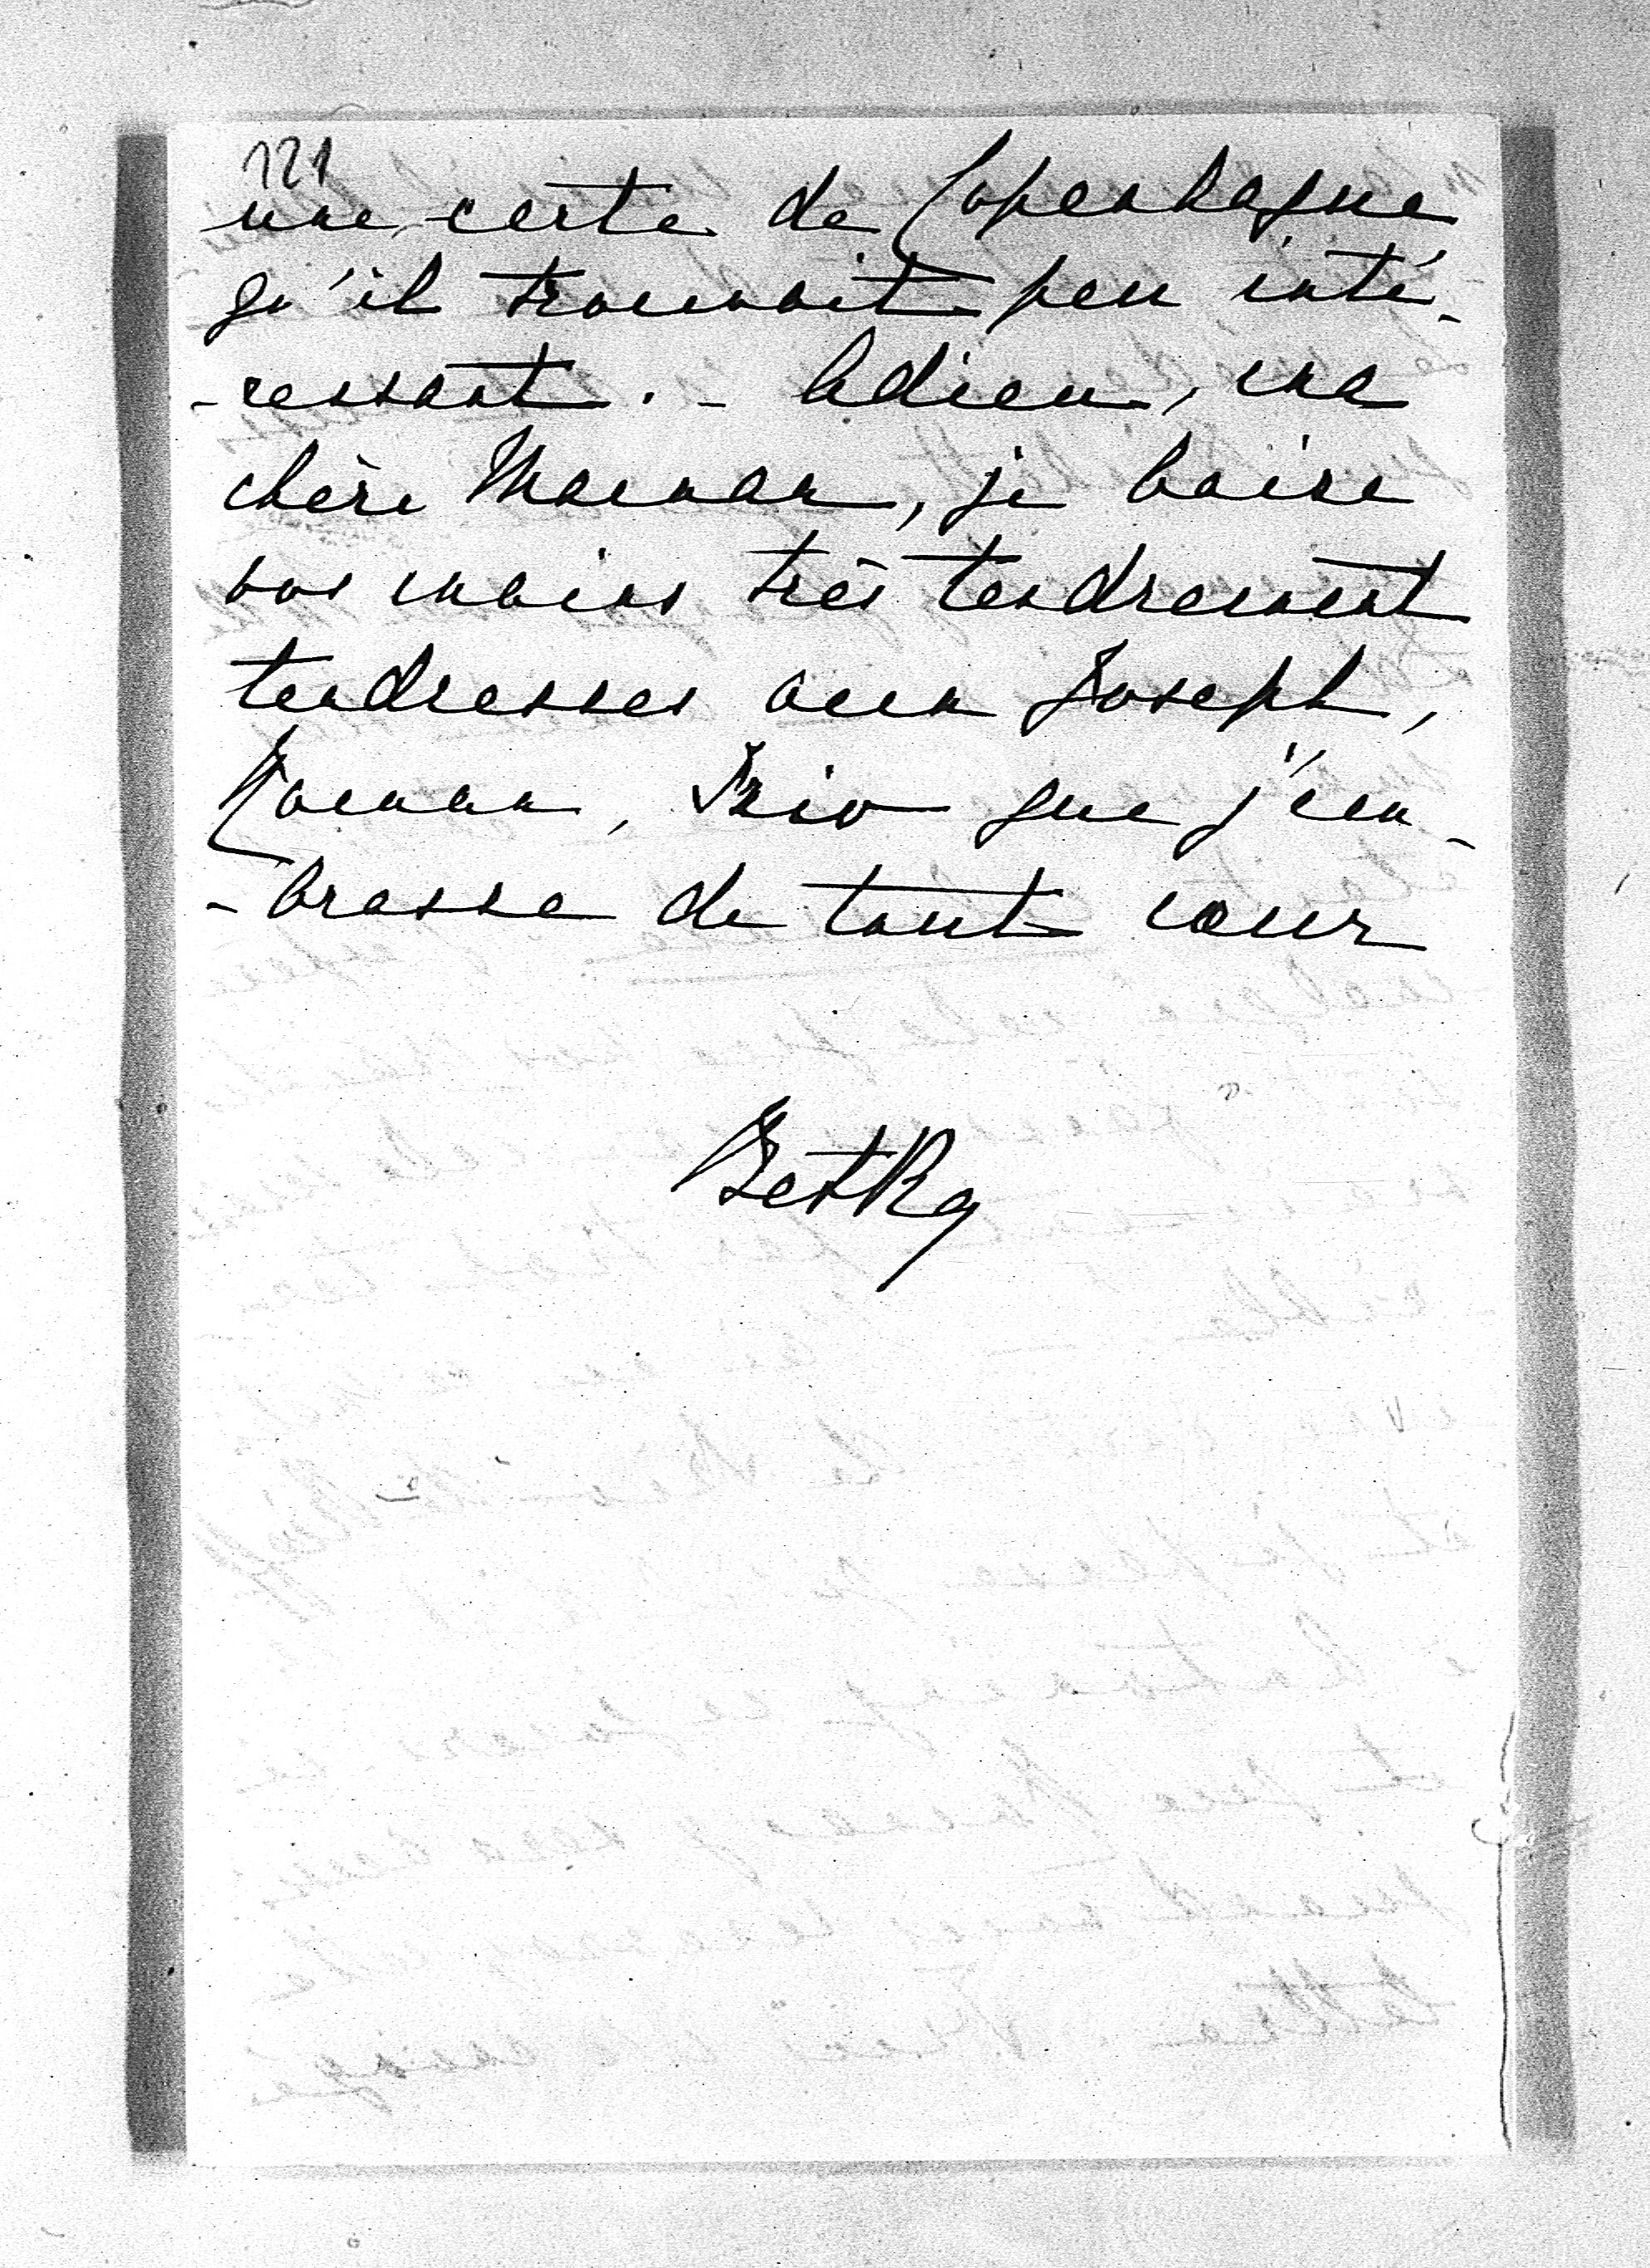 121
une carte de Copenhague
qu'il trouvait peu inté-
-ressant. - Adieu, ma
chère Maman, je baise
vos mains très tendrement
tendresses aux Joseph,
Roman, que j'em-
-brasse de tout cœur
BetRa